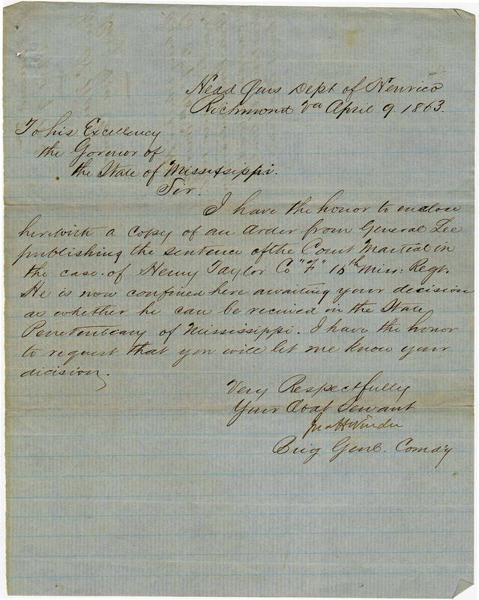 Head Qurs Dept of Henrico
Richmond Va April 9. 1863.
To his Excellency
the Govenor of
the State of Mississippi.
Sir.
I have the honor to enclose
herewith a copy of an order from General Lee
publishing the sentence of the Court Martial in
the case of Henry Taylor Co "F" 16th Miss: Regt.
He is now confined here awaiting your decision
as whether he can be received in the State
Penetenteary of Mississippi. I have the honor
to request that you will let me know your
dicision.
Very Respectfully
Your Obdt Servant
Jno H Winder
Brig Genl. Comdg